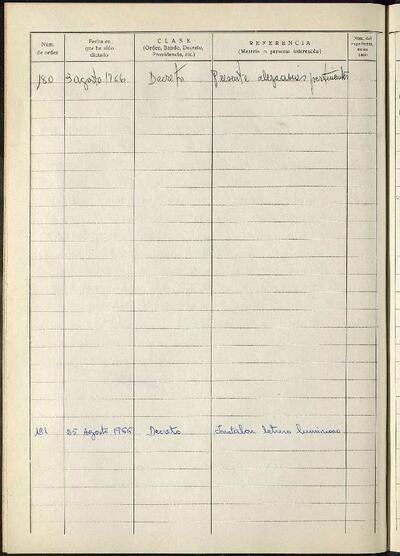 Núm. de orden
Fecha en que ha sido dictado
CLASE
(Orden, Bando, Decreto, Providencia, etc.)
REFERENCIA
(Materia o persona interesada)
Núm. del
180 3 agosto 1966 Decreto Presente alegaciones pertinentes
181 25 Agosto 1966 Decreto Instalar letrero luminoso